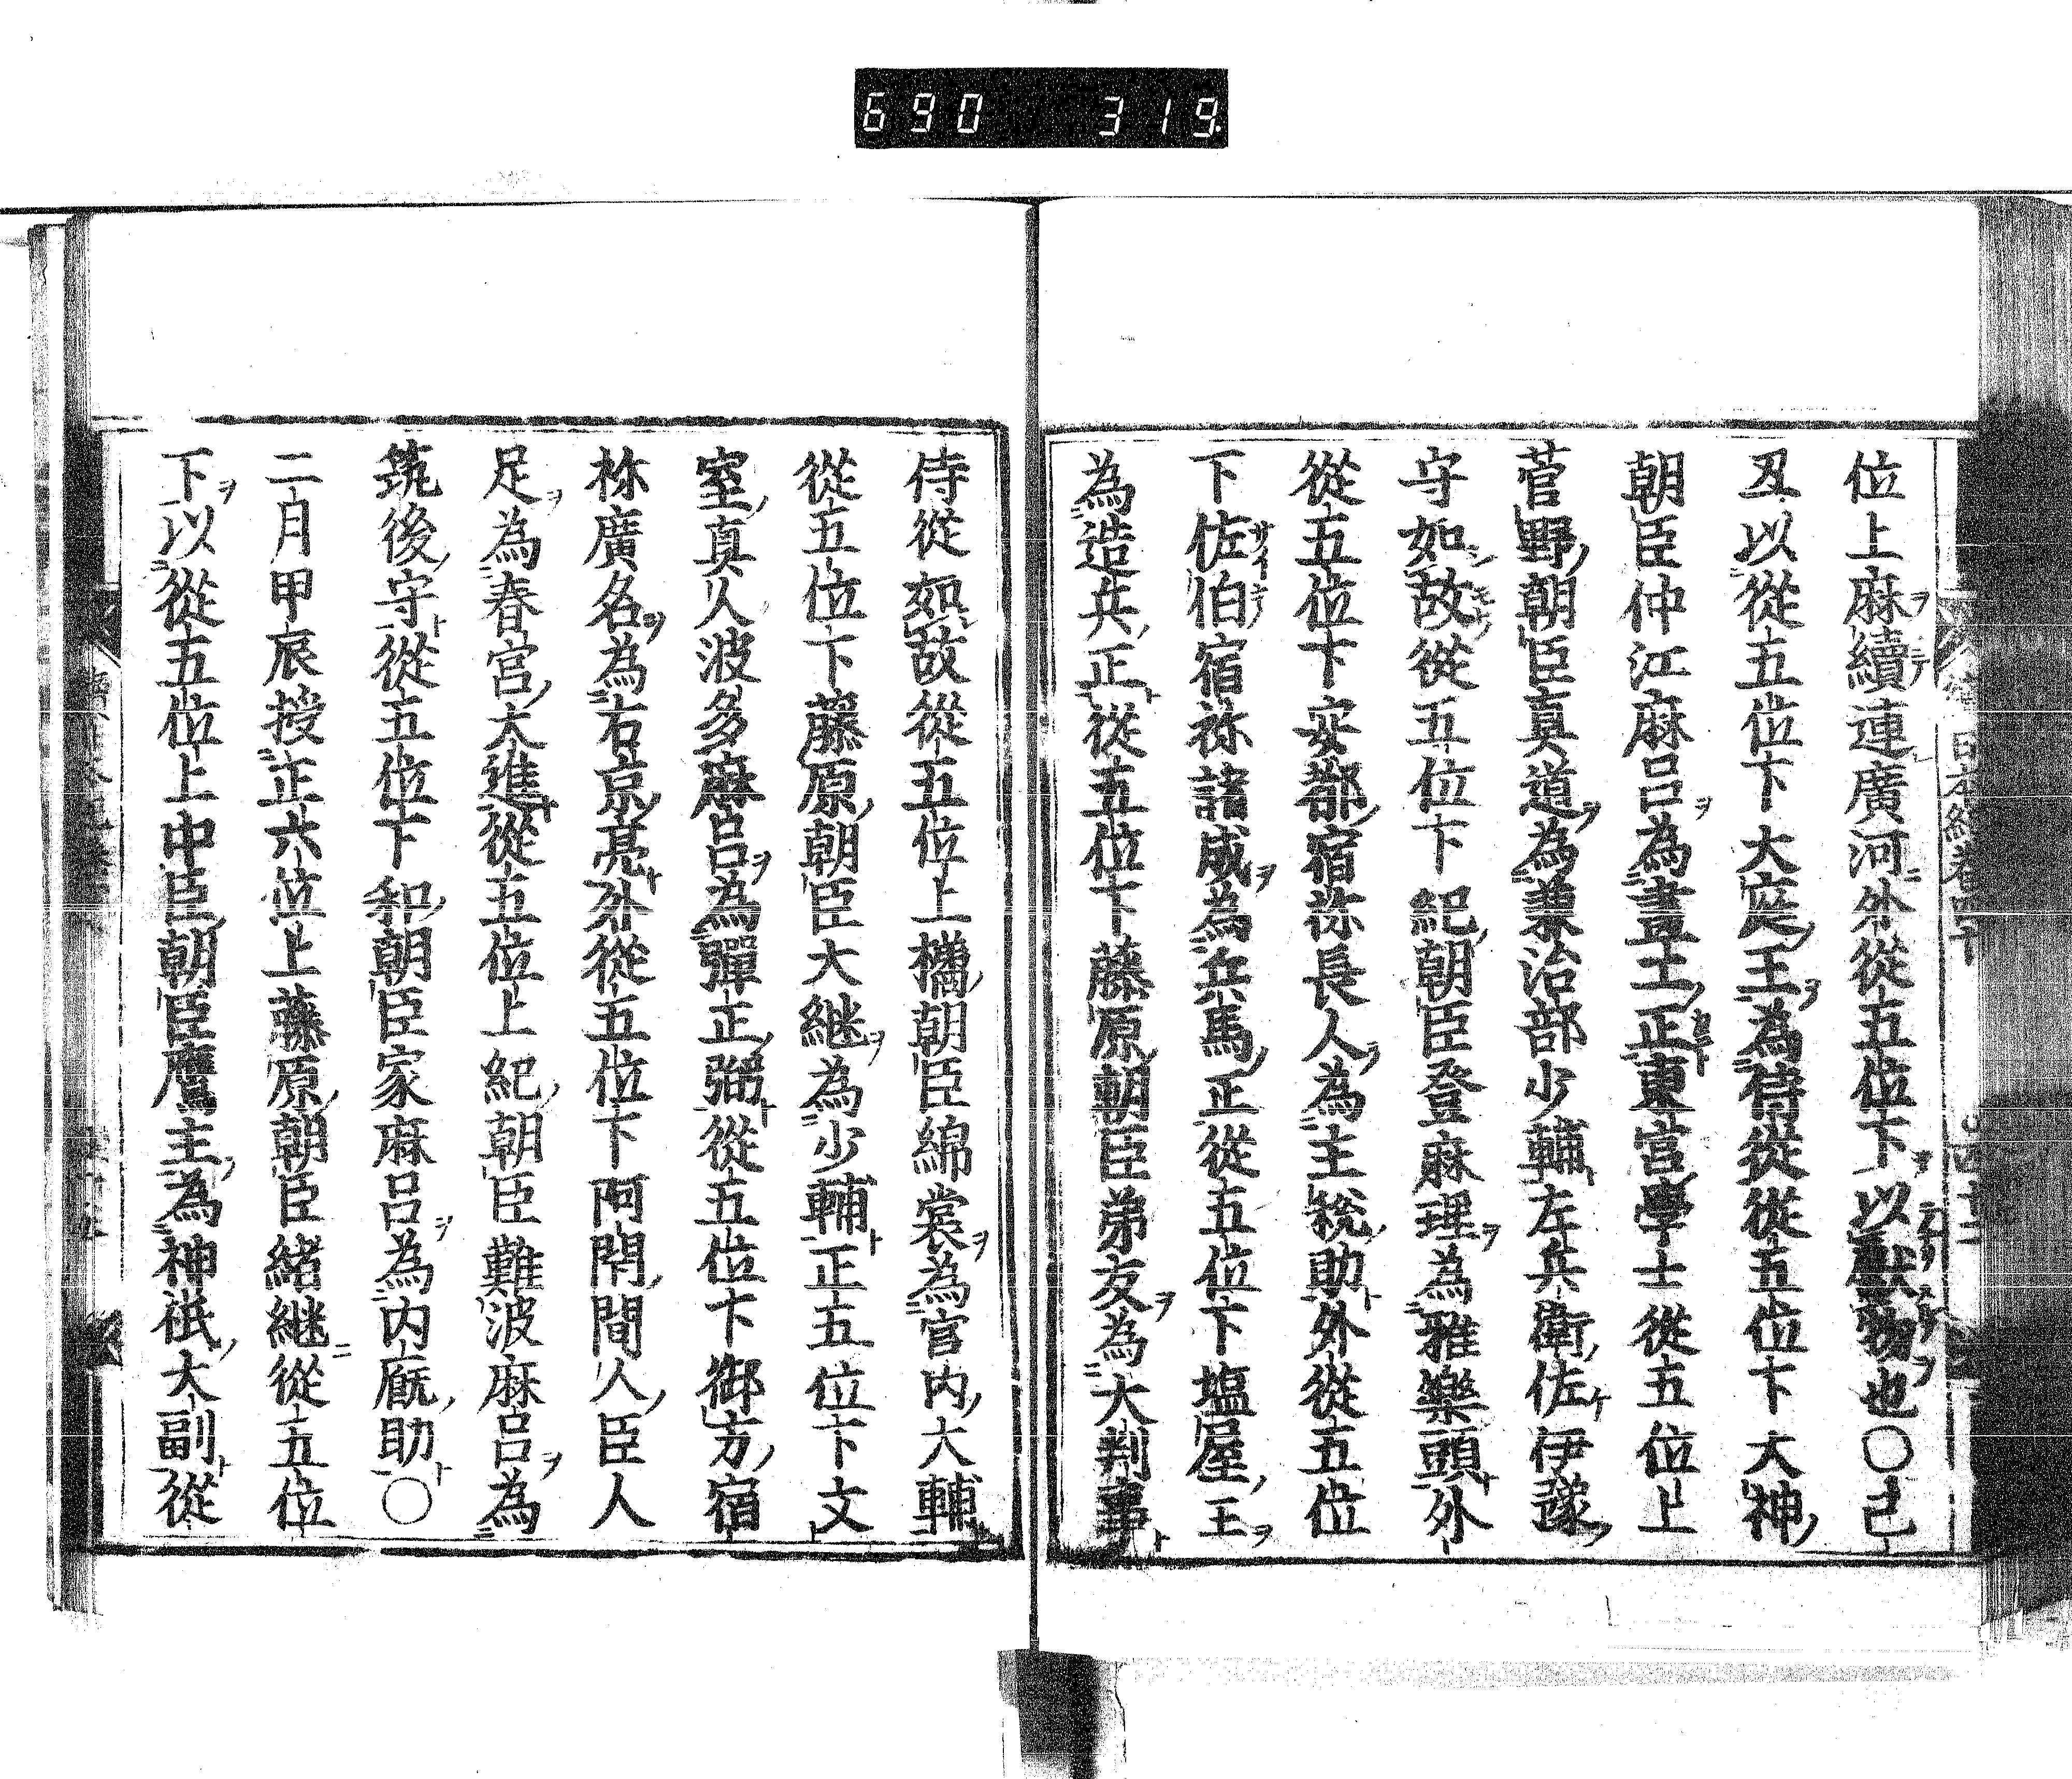 690 319
位上麻續連廣河外從五位下以獻物也○己
丑以從五位下大庭王為侍從從五位下大神
朝臣仲江麻呂為畫工正東宮學士從五位上
菅野朝臣真道為兼治部少輔左兵衛佐伊豫
守如故從五位下紀朝臣登麻理為雅樂頭外
從五位下安都宿祢長人為主税助外從五位
下佐伯宿祢諸成為兵馬正從五位下塩屋王
為造兵正從五位下藤原朝臣弟友為大判事
侍從如故從五位上𣝅朝臣綿裳為宮内大輔
從五位下藤原朝臣大継為少輔正五位下文
室真人波多麻呂為彈正弼從五位下御方宿
祢廣名為右京亮外從五位下阿閇間人臣人
足為春宮大進從五位上紀朝臣難波麻呂為
筑後守從五位下和朝臣家麻呂為内厩助○
二月甲辰授正六位上藤原朝臣緒継從五位
下以從五位上中臣朝臣鷹主為神祇大副從